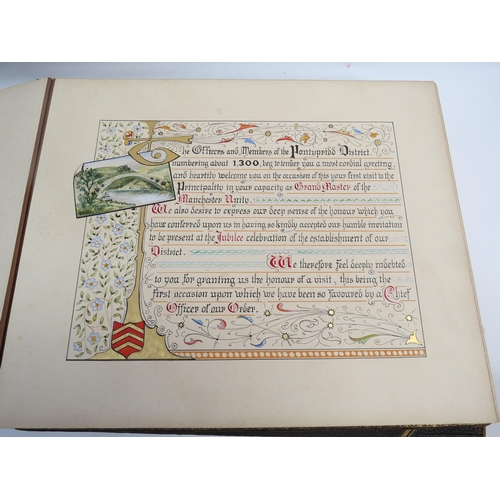 The Officers and Members of the Pontypridd District,
numbering about 1,300, beg to tender you a most cordial greeting
and heartily welcome you on the occasion of this your first visit to the
Principality in your capacity as Grand Master of the
Manchester Unity.
We also desire to express our deep sense of the honour which you
have conferred upon us in having so kindly accepted our humble invitation
to be present at the Jubilee celebration of the establishment of our
District.
We therefore feel deeply indebted
to you for granting us the honour of a visit, this being the
first occasion upon which we have been so favoured by a Chief
Officer of our Order.